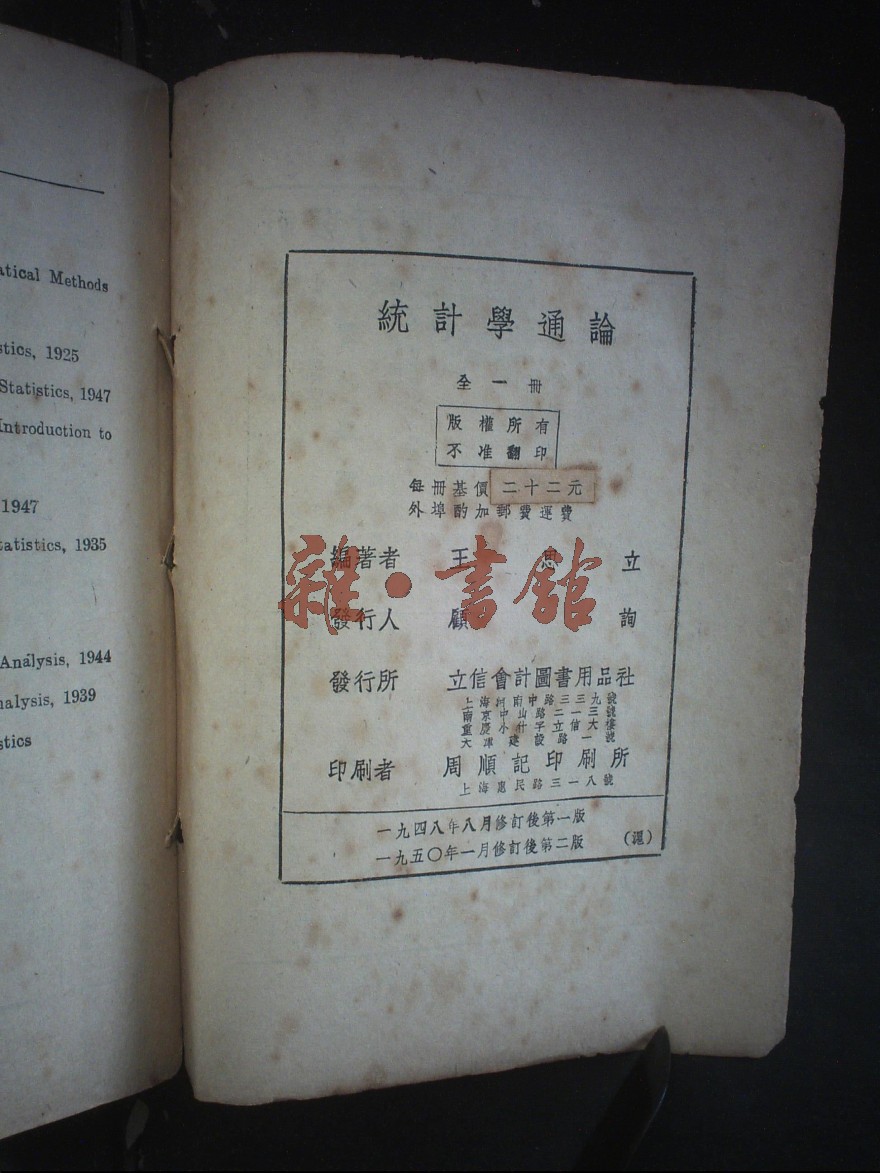 atical Methods
stics, 1925
Statistics, 1947
Introduction to
1947
tatistics, 1935
Analysis, 1944
nalysis, 1939
stics
統計學通論
全一冊
版權所有
不准翻印
每冊基價二十二元
外埠酌加郵費運費
編著者 王思立
發行人 顧詢
雜·書館
發行所 立信會計圖書用品社
上海河南中路三三九號
南京中山路二一三號
重慶小什字立信大樓
天津建設路一號
印刷者 周順記印刷所
上海惠民路三一八號
一九四八年八月修訂後第一版
一九五〇年一月修訂後第二版
(滬)